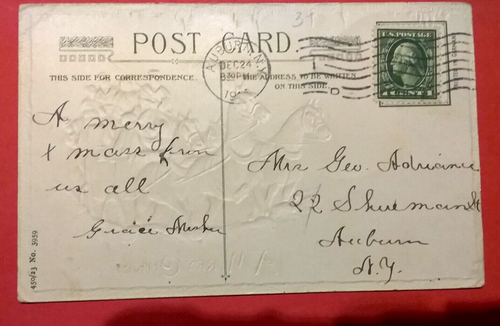 34
POST CARD
THIS SIDE FOR CORRESPONDENCE.
THE ADDRESS TO BE WRITTEN
ON THIS SIDE
AUBURN, N.Y.
DEC 24
U.S. POSTAGE
1 CENT 1
A merry
X mass from
us all
Gracie
Mrs Geo. Adriance
22 Shurman St
Auburn
N.Y.
450/23 No. 3959